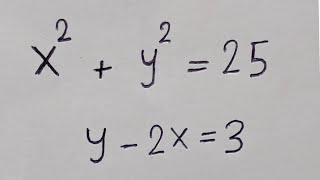 x² + y² = 25
y - 2x = 3